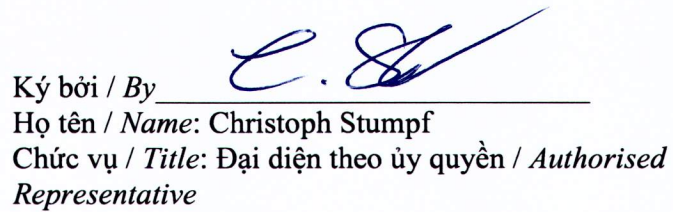 Ký bởi / By
Họ tên / Name: Christoph Stumpf
Chức vụ / Title: Đại diện theo ủy quyền / Authorised
Representative